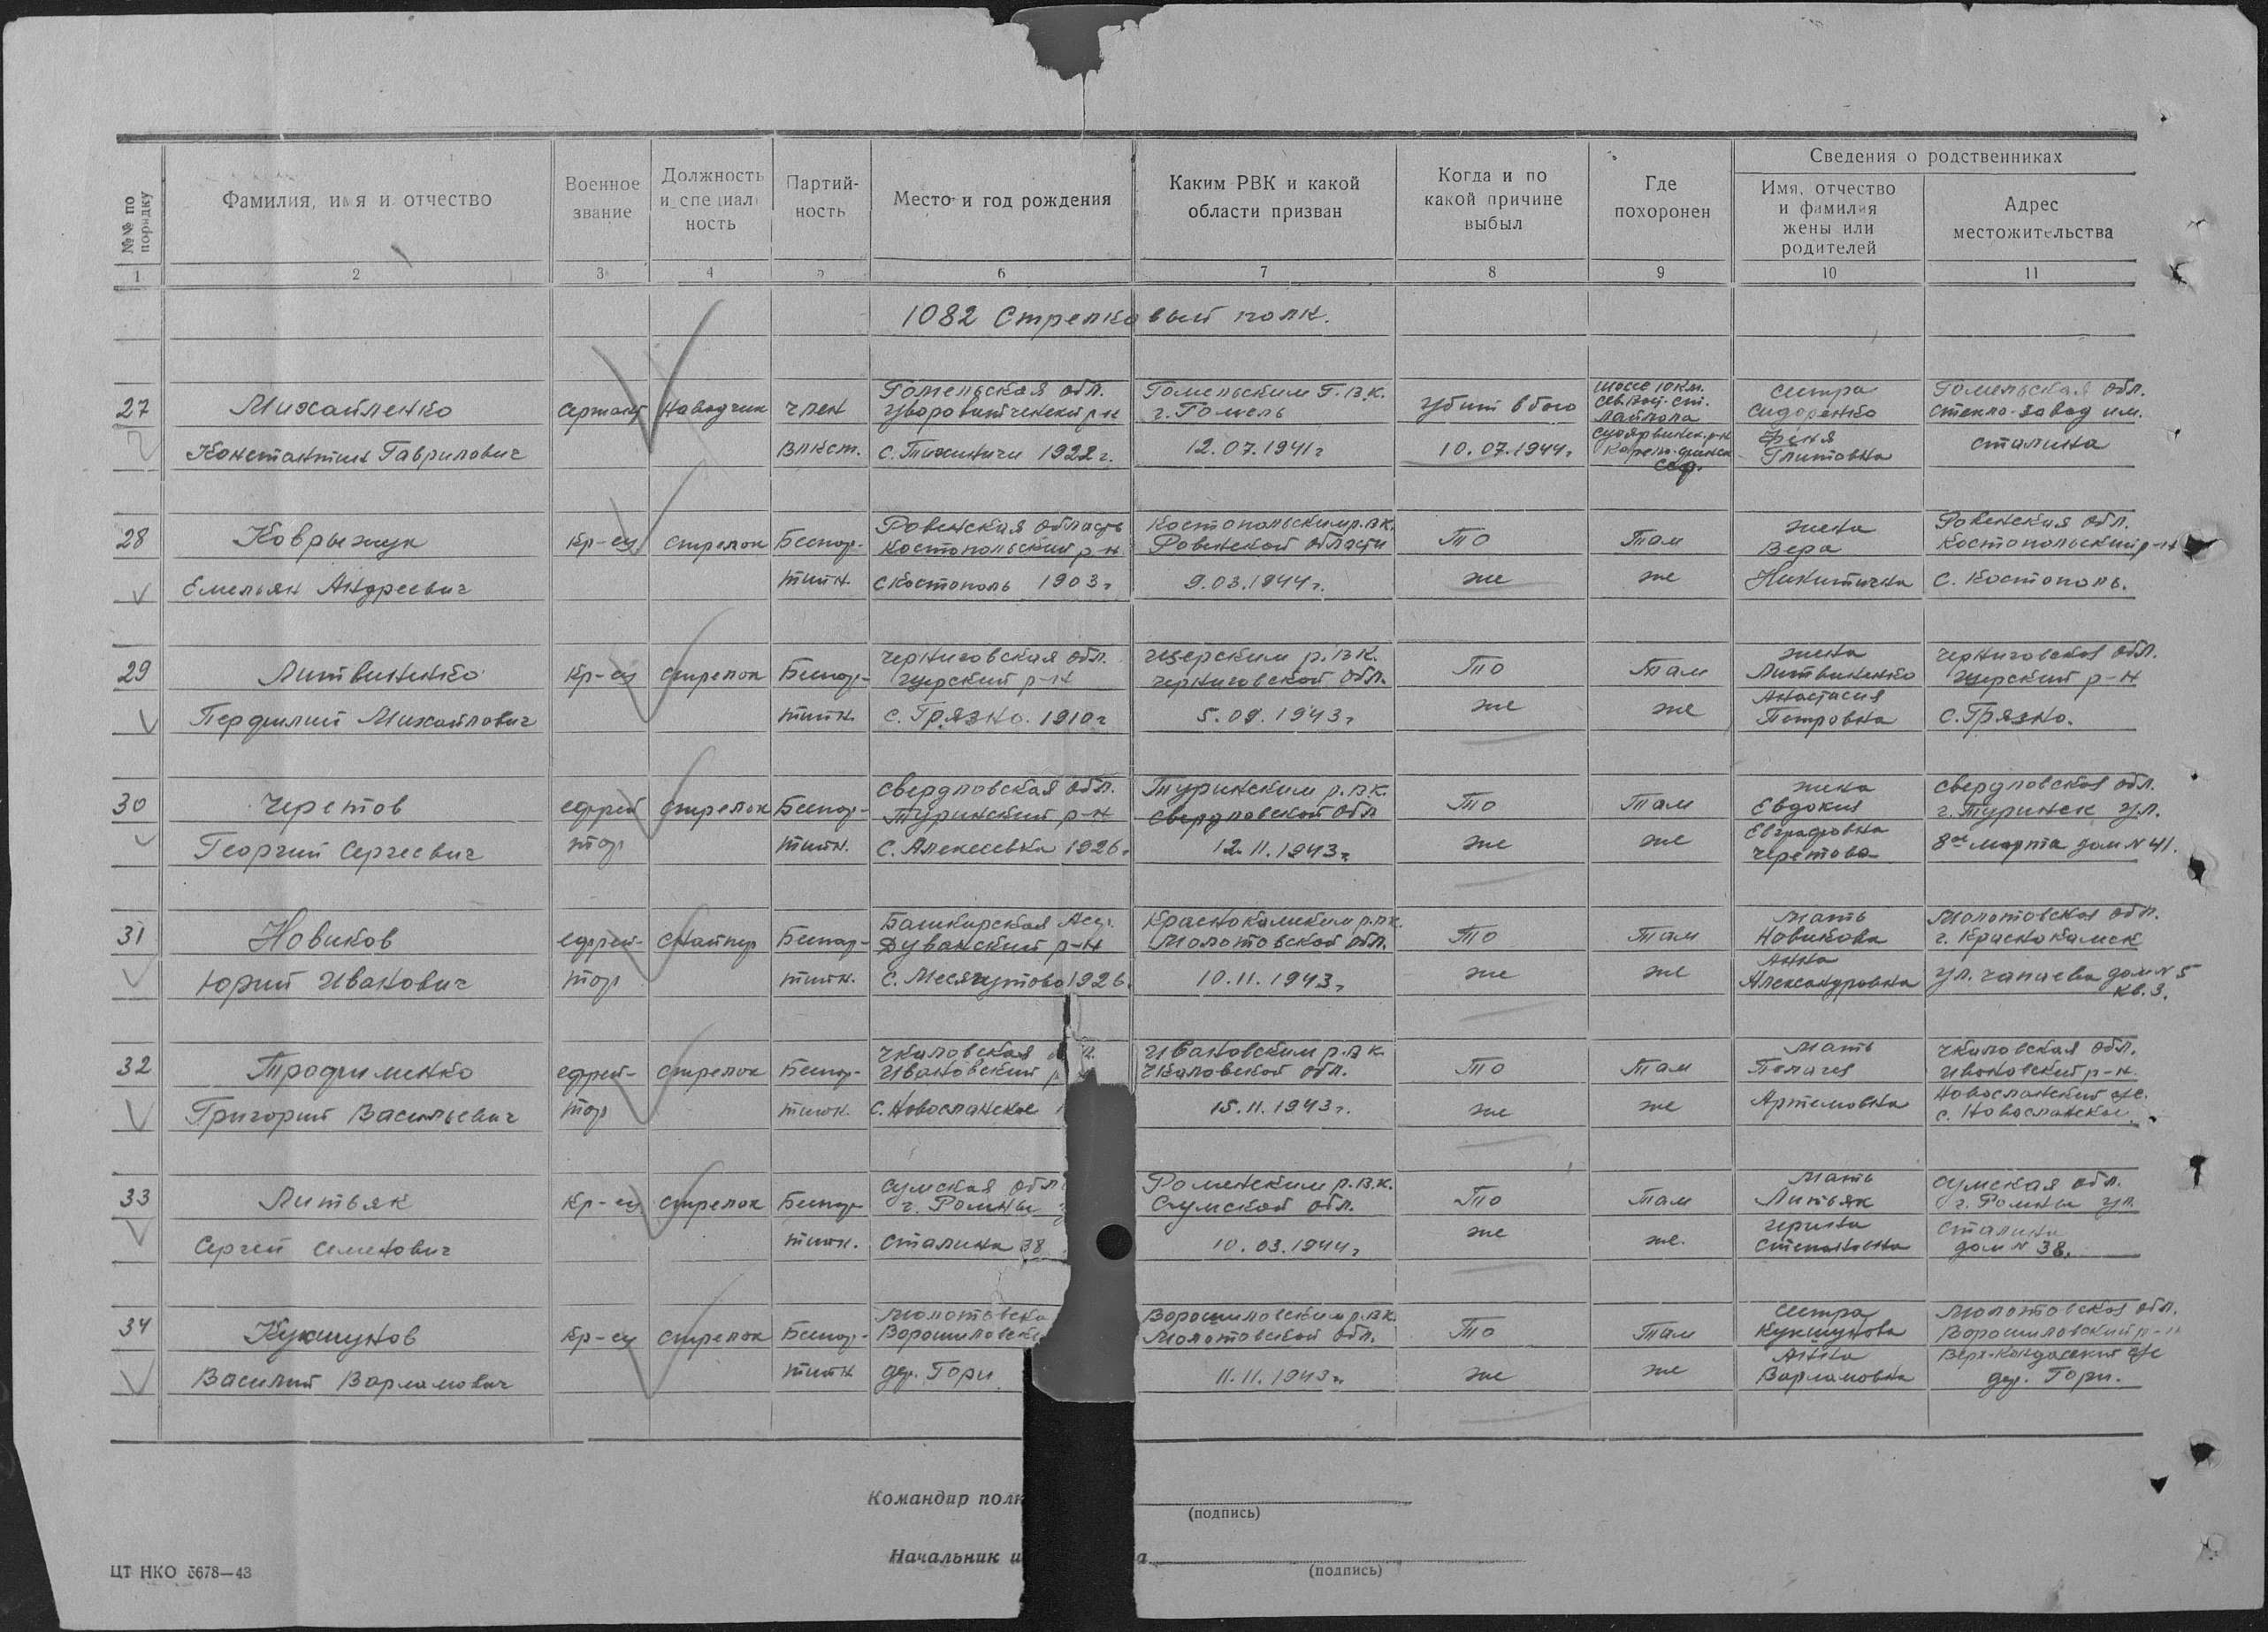 №№ по порядку
Фамилия, имя и отчество
Военное звание
Должность и специальность
Партийность
Место и год рождения
Каким РВК и какой области призван
Когда и по какой причине выбыл
Где похоронен
Сведения о родственниках
Имя, отчество и фамилия жены или родителей
Адрес местожительства
1 2 3 4 5 6 7 8 9 10 11
1082 Стрелковый полк.
27 Михайленко сержант Наводчик член Гомельская обл. Гомельским Г.В.К. г. Гомель убит в бою шоссе 10 км. сев. вост. ст. Лаймола сестра Сидоренко Гомельская обл. стекло-завод им.
Константин Гаврилович влксм. с. Тихиничи 1922 г. 12.07.1941 г 10.07.1944 г. Феня сталина
28 Коврыжук кр-ец стрелок Беспар- Ровенская область Костопольский р-н Костопольским р.в.к. Ровенской области То Там жена Вера Ровенская обл. Костопольский р-н
Емельян Андреевич тийн. с Костополь 1903 г 9.03.1944 г. же же Никитична с. Костополь.
29 Литвиненко кр-ец стрелок Беспар- Черниговская обл. р-н р.в.к. Черниговской обл. То Там жена Литвиненко Черниговская обл. р-н
Михайлович тийн. с. Грязно. 1910 г 5.09.1943 г же же Анастасия Петровна с. Грязно.
30 Черетов ефрей стрелок Беспар- Свердловская обл. Туринский р-н Туринским р.в.к. Свердловской обл То Там жена Евдокия Свердловская обл. г. Туринск ул.
Георгий Сергеевич тор тийн. с. Алексеевка 1926 г 12.11.1943 г. же же Евграфовна Черетова 8ое марта дом № 41.
31 Новиков ефрей- снайпер Беспар- Башкирская Асср. Дуванский р-н Краснокамским р.в.к. Молотовской обл. То Там Мать Новикова Молотовская обл. г. Краснокамск
Юрий Иванович тор тийн. с. Месягутово 1926. 10.11.1943 г же же Анна Александровна ул. Чапаева дом № 5 кв. 3.
32 Трофименко ефрей- стрелок Беспар- Чкаловская Ивановский Ивановским р.в.к. Чкаловской обл. То Там Мать Чкаловская обл. Ивановский р-н.
Григорий Васильевич тор тийн. 15.11.1943 г. же же Артемовна
33 Литвяк кр-ец стрелок Беспар- Сумская обл г. Ромны Роменским р.в.к. Сумской обл. То Там Мать Литвяк Сумская обл. г. Ромны ул.
Сергей Семенович тийн. Сталина 38 10.03.1944 г же же. Степановна Сталина дом № 38.
34 Кукшунов кр-ец стрелок Беспар- Ворошиловским р.в.к. Молотовской обл. То Там сестра Кукшунова Молотовская обл. Ворошиловский р-н
Василий Варламович тийн дер. Гори 11.11.1943 г. же же Анна Варламовна дер. Гори.
Командир полк
(подпись)
Начальник
(подпись)
ЦТ НКО 5678—43